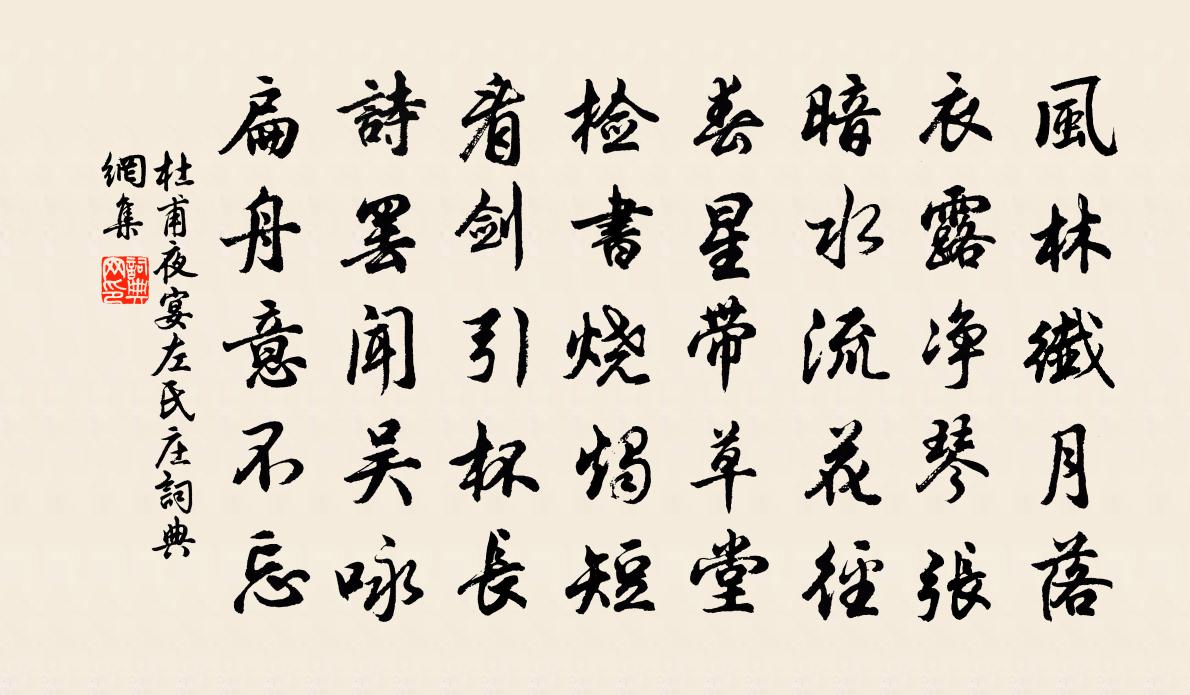 風林纖月落
衣露净琴張
暗水流花徑
春星帶草堂
檢書烧燭短
看劍引杯長
詩罢闻吴咏
扁舟意不忘
杜甫夜宴左氏庄詞典
網集
詞典
网印